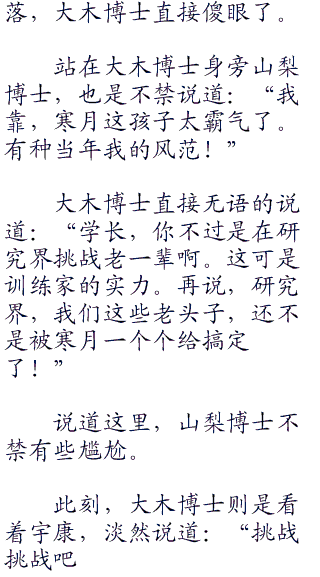 落，大木博士直接傻眼了。
站在大木博士身旁山梨
博士，也是不禁说道：“我
靠，寒月这孩子太霸气了。
有种当年我的风范！”
大木博士直接无语的说
道：“学长，你不过是在研
究界挑战老一辈啊。这可是
训练家的实力。再说，研究
界，我们这些老头子，还不
是被寒月一个个给搞定
了！”
说道这里，山梨博士不
禁有些尴尬。
此刻，大木博士则是看
着宇康，淡然说道：“挑战
挑战吧